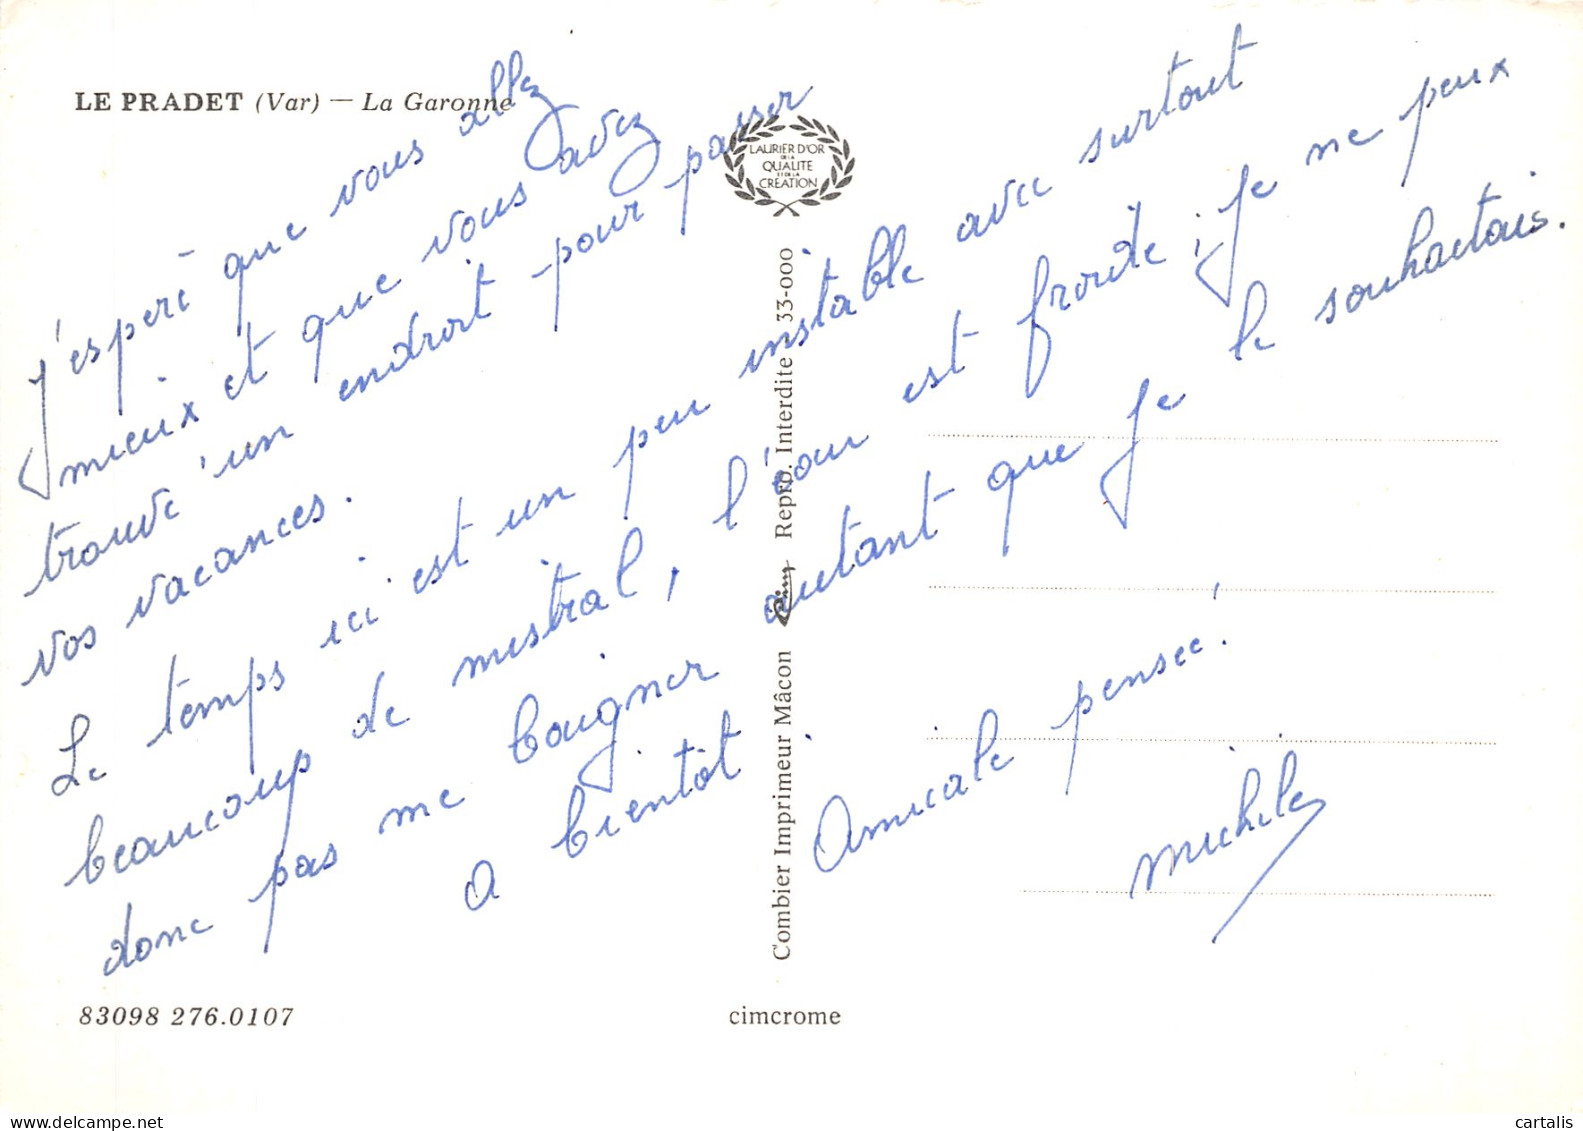 LE PRADET (Var) — La Garonne
LAURIER D'OR
DE LA
QUALITE
ET DE LA
CREATION
j'espère que vous allez
mieux et que vous avez
trouvé un endroit pour passer
vos vacances.
Le temps ici est un peu instable avec surtout
beaucoup de mistral, l'eau est froide ; je ne peux
donc pas me baigner autant que je le souhaitais.
a bientôt.
Amicale pensée.
Michèle
Combier Imprimeur Mâcon Cim Repro. Interdite 33-000
83098 276.0107
cimcrome
cartalis